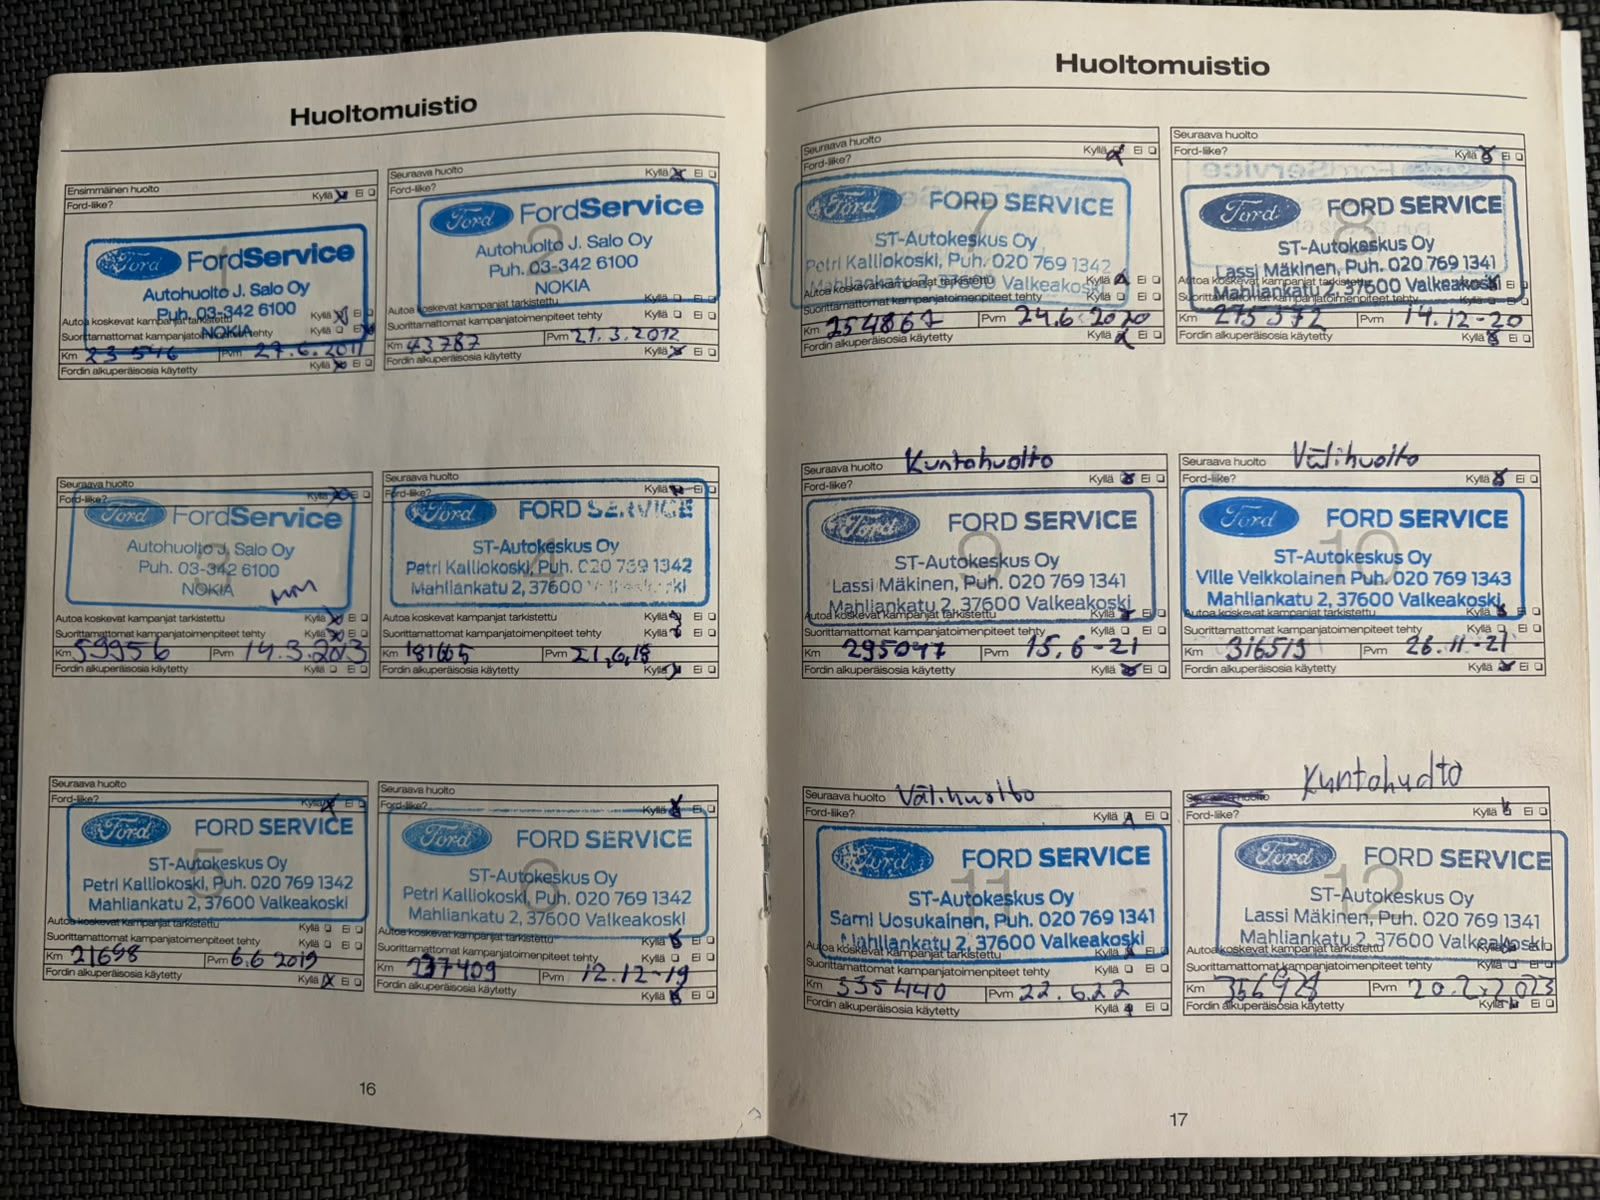 Huoltomuistio
Ensimmäinen huolto
Ford-liike? Kyllä Ei
Ford FordService
Autohuolto J. Salo Oy
Puh. 03-342 6100
NOKIA
Autoa koskevat kampanjat tarkistettu Kyllä Ei
Suorittamattomat kampanjatoimenpiteet tehty Kyllä Ei
Km 23 546 Pvm 27.6.2011
Fordin alkuperäisosia käytetty Kyllä Ei
Seuraava huolto
Ford-liike? Kyllä Ei
2
Ford FordService
Autohuolto J. Salo Oy
Puh. 03-342 6100
NOKIA
Autoa koskevat kampanjat tarkistettu Kyllä Ei
Suorittamattomat kampanjatoimenpiteet tehty Kyllä Ei
Km 43787 Pvm 21.3.2012
Fordin alkuperäisosia käytetty Kyllä Ei
Seuraava huolto
Ford-liike? Kyllä Ei
3
Ford FordService
Autohuolto J. Salo Oy
Puh. 03-342 6100
NOKIA
Autoa koskevat kampanjat tarkistettu Kyllä Ei
Suorittamattomat kampanjatoimenpiteet tehty Kyllä Ei
Km 59956 Pvm 14.3.2013
Fordin alkuperäisosia käytetty Kyllä Ei
Seuraava huolto
Ford-liike? Kyllä Ei
4
Ford FORD SERVICE
ST-Autokeskus Oy
Petri Kalliokoski, Puh. 020 769 1342
Mahliankatu 2, 37600 Valkeakoski
Autoa koskevat kampanjat tarkistettu Kyllä Ei
Suorittamattomat kampanjatoimenpiteet tehty Kyllä Ei
Km 181665 Pvm 21,6,18
Fordin alkuperäisosia käytetty Kyllä Ei
Seuraava huolto
Ford-liike? Kyllä Ei
5
Ford FORD SERVICE
ST-Autokeskus Oy
Petri Kalliokoski, Puh. 020 769 1342
Mahliankatu 2, 37600 Valkeakoski
Autoa koskevat kampanjat tarkistettu Kyllä Ei
Suorittamattomat kampanjatoimenpiteet tehty Kyllä Ei
Km Pvm 6.6 2019
Fordin alkuperäisosia käytetty Kyllä Ei
Seuraava huolto
Ford-liike? Kyllä Ei
6
Ford FORD SERVICE
ST-Autokeskus Oy
Petri Kalliokoski, Puh. 020 769 1342
Mahliankatu 2, 37600 Valkeakoski
Autoa koskevat kampanjat tarkistettu Kyllä Ei
Suorittamattomat kampanjatoimenpiteet tehty Kyllä Ei
Km 237409 Pvm 12.12-19
Fordin alkuperäisosia käytetty Kyllä Ei
16
Huoltomuistio
Seuraava huolto
Ford-liike? Kyllä Ei
7
Ford FORD SERVICE
ST-Autokeskus Oy
Petri Kalliokoski, Puh. 020 769 1342
Mahliankatu 2, 37600 Valkeakoski
Autoa koskevat kampanjat tarkistettu Kyllä Ei
Suorittamattomat kampanjatoimenpiteet tehty Kyllä Ei
Km 254867 Pvm 24.6.2020
Fordin alkuperäisosia käytetty Kyllä Ei
Seuraava huolto
Ford-liike? Kyllä Ei
8
Ford FORD SERVICE
ST-Autokeskus Oy
Lassi Mäkinen, Puh. 020 769 1341
Mahliankatu 2, 37600 Valkeakoski
Autoa koskevat kampanjat tarkistettu Kyllä Ei
Suorittamattomat kampanjatoimenpiteet tehty Kyllä Ei
Km 275372 Pvm 14.12-20
Fordin alkuperäisosia käytetty Kyllä Ei
Seuraava huolto Kuntohuolto
Ford-liike? Kyllä Ei
9
Ford FORD SERVICE
ST-Autokeskus Oy
Lassi Mäkinen, Puh. 020 769 1341
Mahliankatu 2, 37600 Valkeakoski
Autoa koskevat kampanjat tarkistettu Kyllä Ei
Suorittamattomat kampanjatoimenpiteet tehty Kyllä Ei
Km 295047 Pvm 15.6-21
Fordin alkuperäisosia käytetty Kyllä Ei
Seuraava huolto Välihuolto
Ford-liike? Kyllä Ei
10
Ford FORD SERVICE
ST-Autokeskus Oy
Ville Veikkolainen Puh. 020 769 1343
Mahliankatu 2, 37600 Valkeakoski
Autoa koskevat kampanjat tarkistettu Kyllä Ei
Suorittamattomat kampanjatoimenpiteet tehty Kyllä Ei
Km 316513 Pvm 26.11-21
Fordin alkuperäisosia käytetty Kyllä Ei
Seuraava huolto Välihuolto
Ford-liike? Kyllä Ei
11
Ford FORD SERVICE
ST-Autokeskus Oy
Sami Uosukainen, Puh. 020 769 1341
Mahliankatu 2, 37600 Valkeakoski
Autoa koskevat kampanjat tarkistettu Kyllä Ei
Suorittamattomat kampanjatoimenpiteet tehty Kyllä Ei
Km 335440 Pvm 22.6.22
Fordin alkuperäisosia käytetty Kyllä Ei
Kuntohuolto
Ford-liike? Kyllä Ei
12
Ford FORD SERVICE
ST-Autokeskus Oy
Lassi Mäkinen, Puh. 020 769 1341
Mahliankatu 2, 37600 Valkeakoski
Autoa koskevat kampanjat tarkistettu Kyllä Ei
Suorittamattomat kampanjatoimenpiteet tehty Kyllä Ei
Km 356928 Pvm 20.2.2023
Fordin alkuperäisosia käytetty Kyllä Ei
17